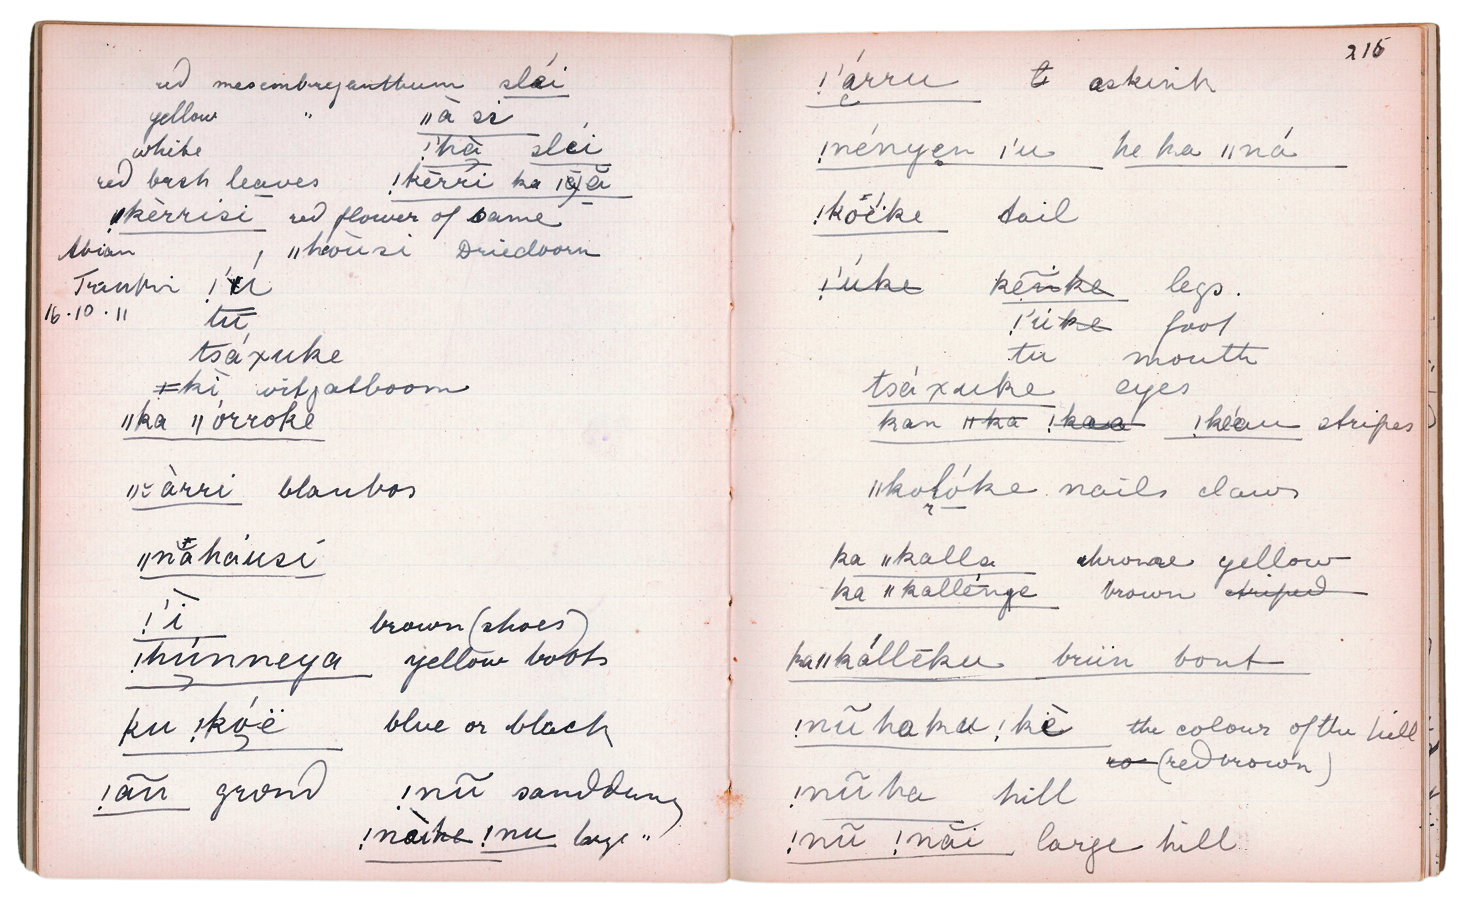 red mesembryanthum sléi
yellow " ǁà si
white !'hà sléi
red bush leaves !kèrri ka
ǁkèrrisi red flower of same
Abian , ǁhòùsi Driedoorn
!'ú
16.10.11 tu
tsáxuke
ǂkì witgatboom
ǁka ǁórroke
ǁàrri blaubos
ǁnàháusí
!'ì brown (shoes)
!húnneya yellow boots
ku !kóë blue or black
!aũ grond !nũ sanddung
!nàike !nu large "
215
!'árru to
!nényen !'u he ka ǁná
!kóëke tail
!'úke keīike legs.
!'úke foot
tu mouth
tsáxuke eyes
kan ǁka !kaa !kéau stripes
ǁkolóke nails claws
r
ka ǁkalla chrome yellow
ka ǁkallénge brown striped
kaǁkállēku brüin bont
!nũhaku !kè the colour of the hill
ro (redbrown)
!nũha hill
!nũ !nãi large hill